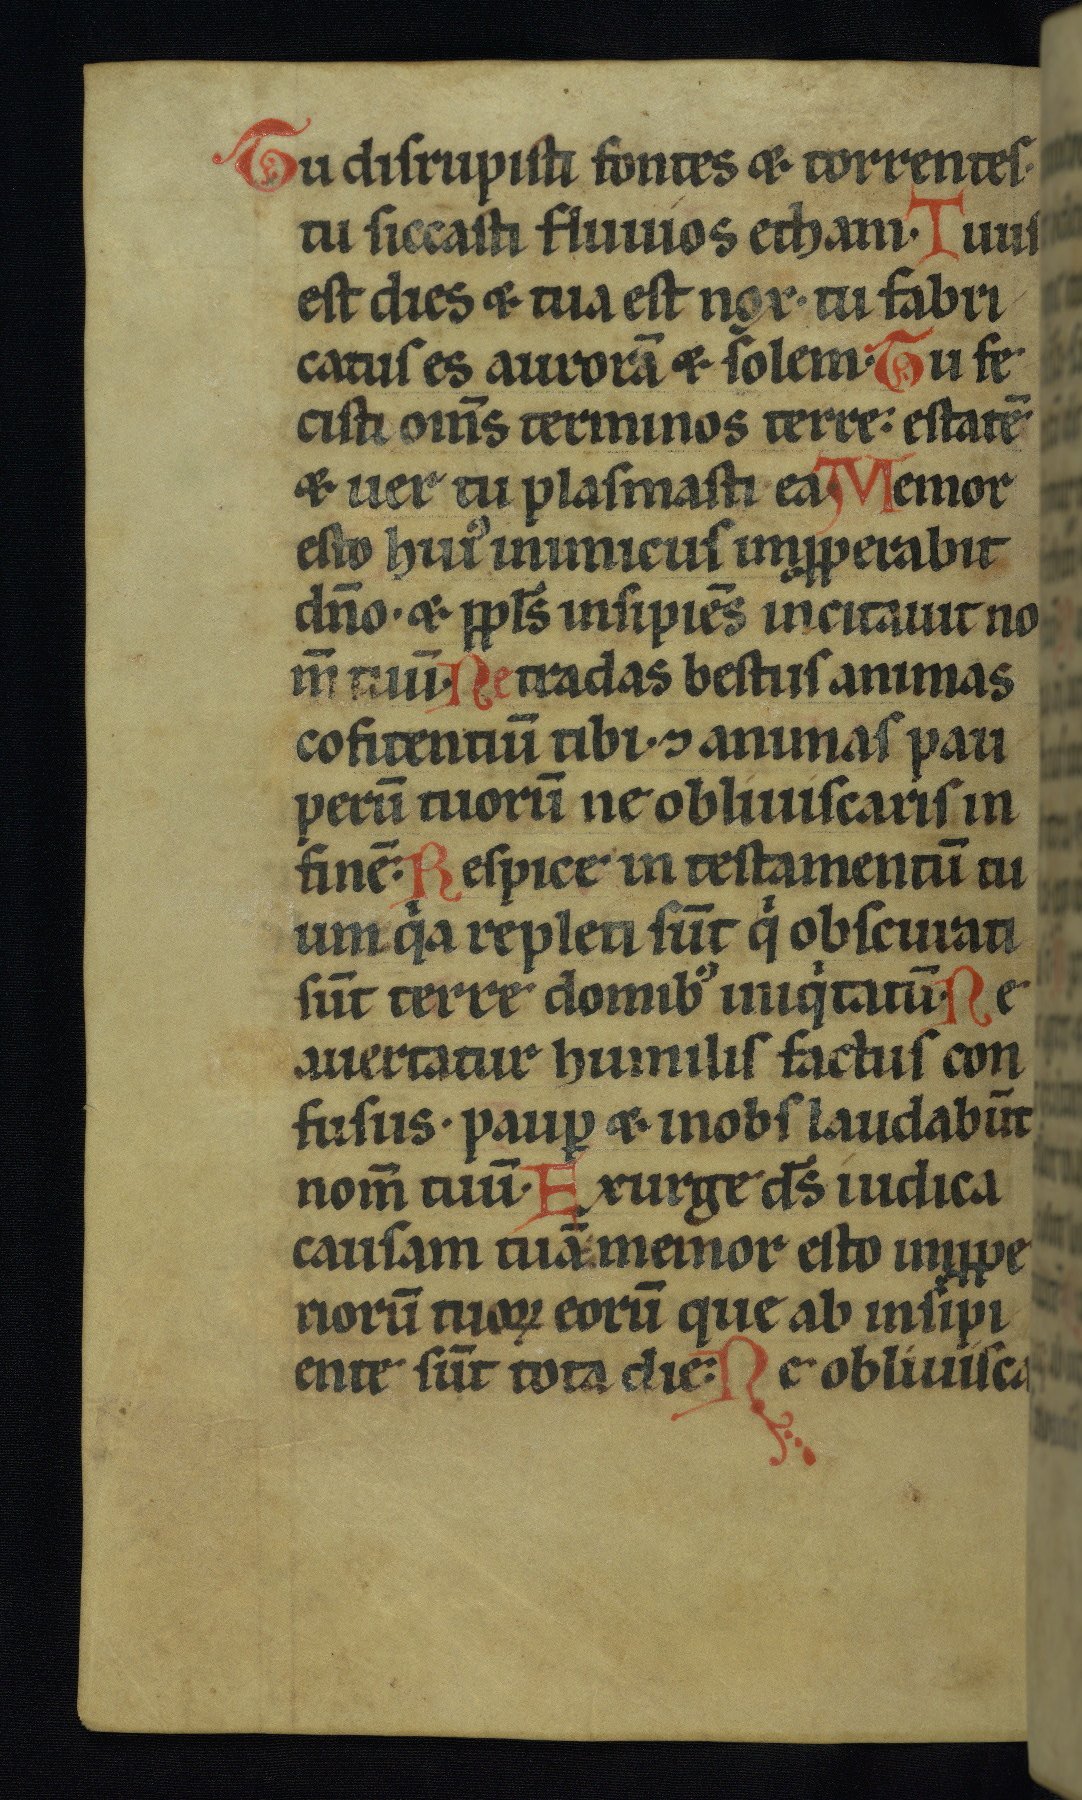 Tu disrupisti fontes & torrentes·
tu siccasti fluuios etham· Tuus
est dies & tua est nox· tu fabri
catus es aurorā & solem· Tu fe
cisti om̄s terminos terre: estatē
& uer tu plasmasti ea· Memor
esto huiꝰ inimicus imꝓperabit
dn̄o· & ppl̄s insipiēs incitauit no
m̄ tuū· Ne tradas bestiis animas
cofitentiū tibi· ⁊ animas pau
perū tuorū ne obliuiscaris in
finē: Respice in testamentū tu
um qͥa repleti sūt qͥ obscurati
sūt terre domibꝰ iniqͥtatū· Ne
auertatur humilis factus con
fusus· pauꝑ & inobs laudabūt
nom̄ tuū· Exurge ds̄ iudica
causam tuā memor esto imꝓpe
riorū tuoꝝ eorū que ab insipi
ente sūt tota die: Ne obliuisca